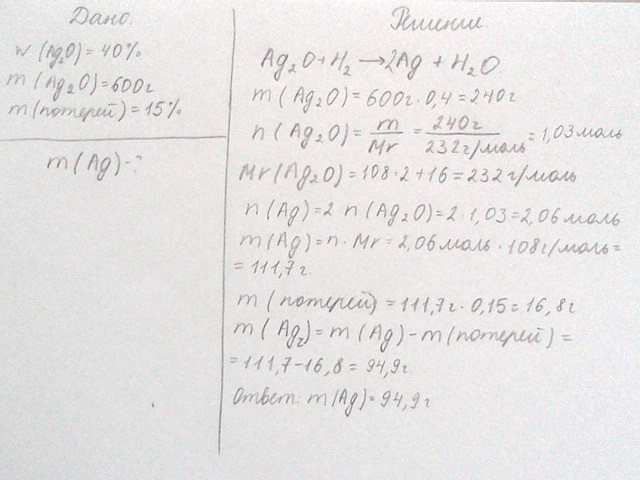 Дано.
w (Ag₂O) = 40%
m (Ag₂O) = 600г
m (потерей) = 15%
m (Ag) - ?
Решение.
Ag₂O + H₂ → 2Ag + H₂O
m (Ag₂O) = 600г · 0,4 = 240г
n (Ag₂O) = m/Mr = 240г/232г/моль = 1,03 моль
Mr (Ag₂O) = 108 · 2 + 16 = 232 г/моль
n (Ag) = 2 n (Ag₂O) = 2 · 1,03 = 2,06 моль
m (Ag) = n · Mr = 2,06 моль · 108г/моль =
= 111,7г.
m (потерей) = 111,7г · 0,15 = 16,8г
m (Ag₂) = m (Ag) - m (потерей) =
= 111,7 - 16,8 = 94,9г.
Ответ: m (Ag) = 94,9г